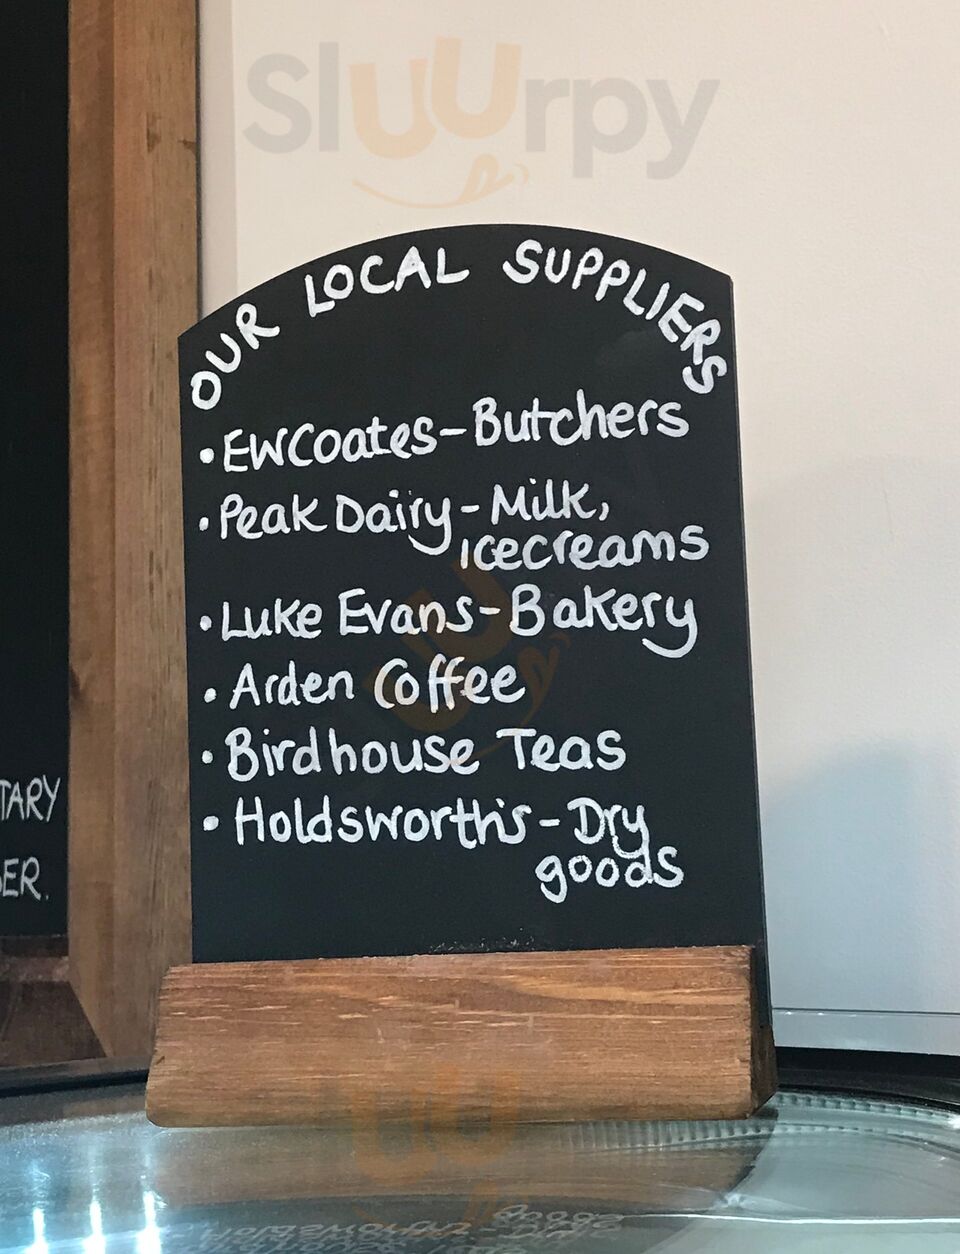 Sluurpy
OUR LOCAL SUPPLIERS
• EWCoates - Butchers
• Peak Dairy - Milk,
icecreams
• Luke Evans - Bakery
• Arden Coffee
• Birdhouse Teas
• Holdsworth's - Dry
goods
TARY
ER.